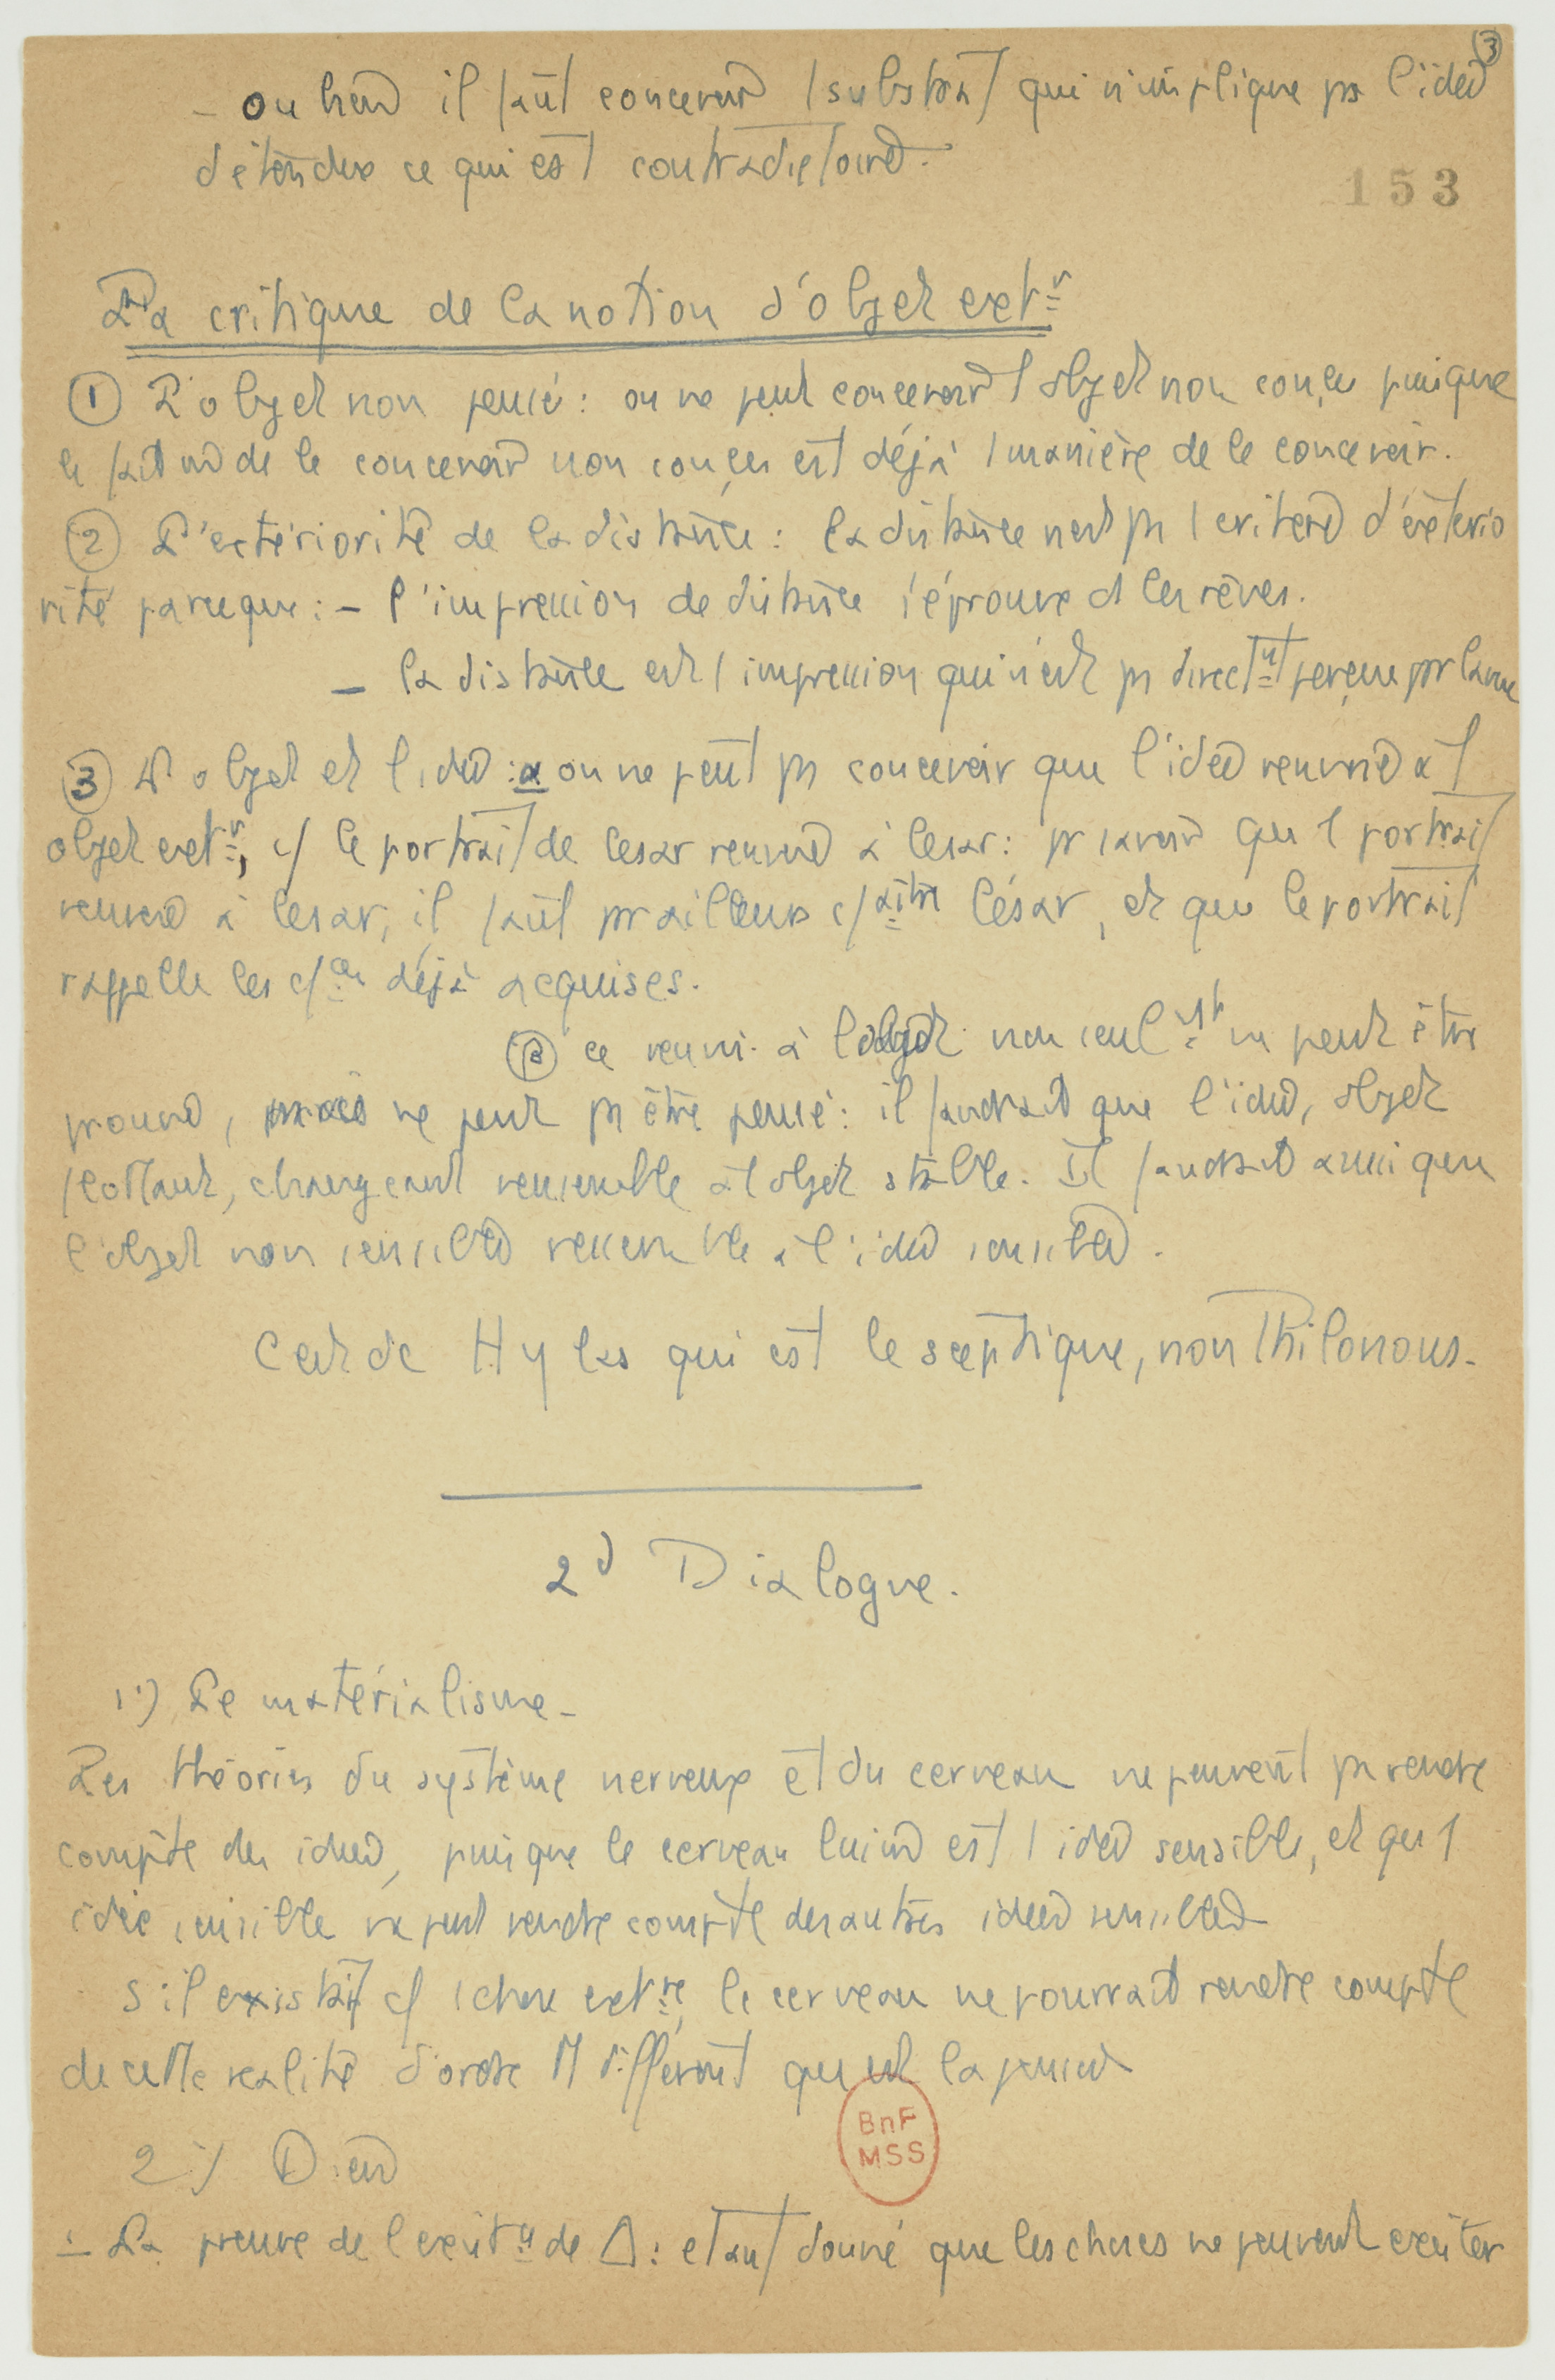 ③
- ou bien il faut concevoir 1 substrat qui n'implique pas l'idée
d'étendue ce qui est contradictoire.
153
La critique de la notion d'objet extr
① L'objet non pensé : on ne peut concevoir 1 objet non conçu puisque
le fait de le concevoir non conçu est déjà 1 manière de le concevoir.
② L'extériorité de la distance : la distance n'est pas 1 critère d'extério
rité parce que : - l'impression de distance s'éprouve ds les rêves.
- la distance est 1 impression qui n'est pas directmt perçue par la vue
③ L'objet et l'idée : α on ne peut pas concevoir que l'idée renvoie à 1
objet extr, c/ le portrait de César renvoie à César : pr savoir qu'1 portrait
renvoie à César, il faut par ailleurs c/aître César, et que le portrait
rappelle les c/ces déjà acquises.
β ce renvoi à l'objet non seulmt ne peut être
prouvé, mais ne peut pas être pensé : il faudrait que l'idée, objet
flottant, changeant ressemble à 1 objet stable. Il faudrait aussi que
l'objet non sensible ressemble à l'idée sensible.
C'est dc Hylas qui est le sceptique, non Philonous.
2d Dialogue.
1°) Le matérialisme -
Les théories du système nerveux et du cerveau ne peuvent pas rendre
compte des idées, puisque le cerveau lui m est 1 idée sensible, et qu'1
idée sensible ne peut rendre compte des autres idées sensibles
S'il existait c/ 1 chose extre, le cerveau ne pourrait rendre compte
de cette réalité d'ordre tt différent qu'est la pensée
2°) Dieu
- La preuve de l'existce de Δ : étant donné que les choses ne peuvent exister
BnF
MSS